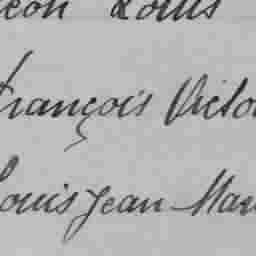 Louis
François Victo
Louis Jean Mar